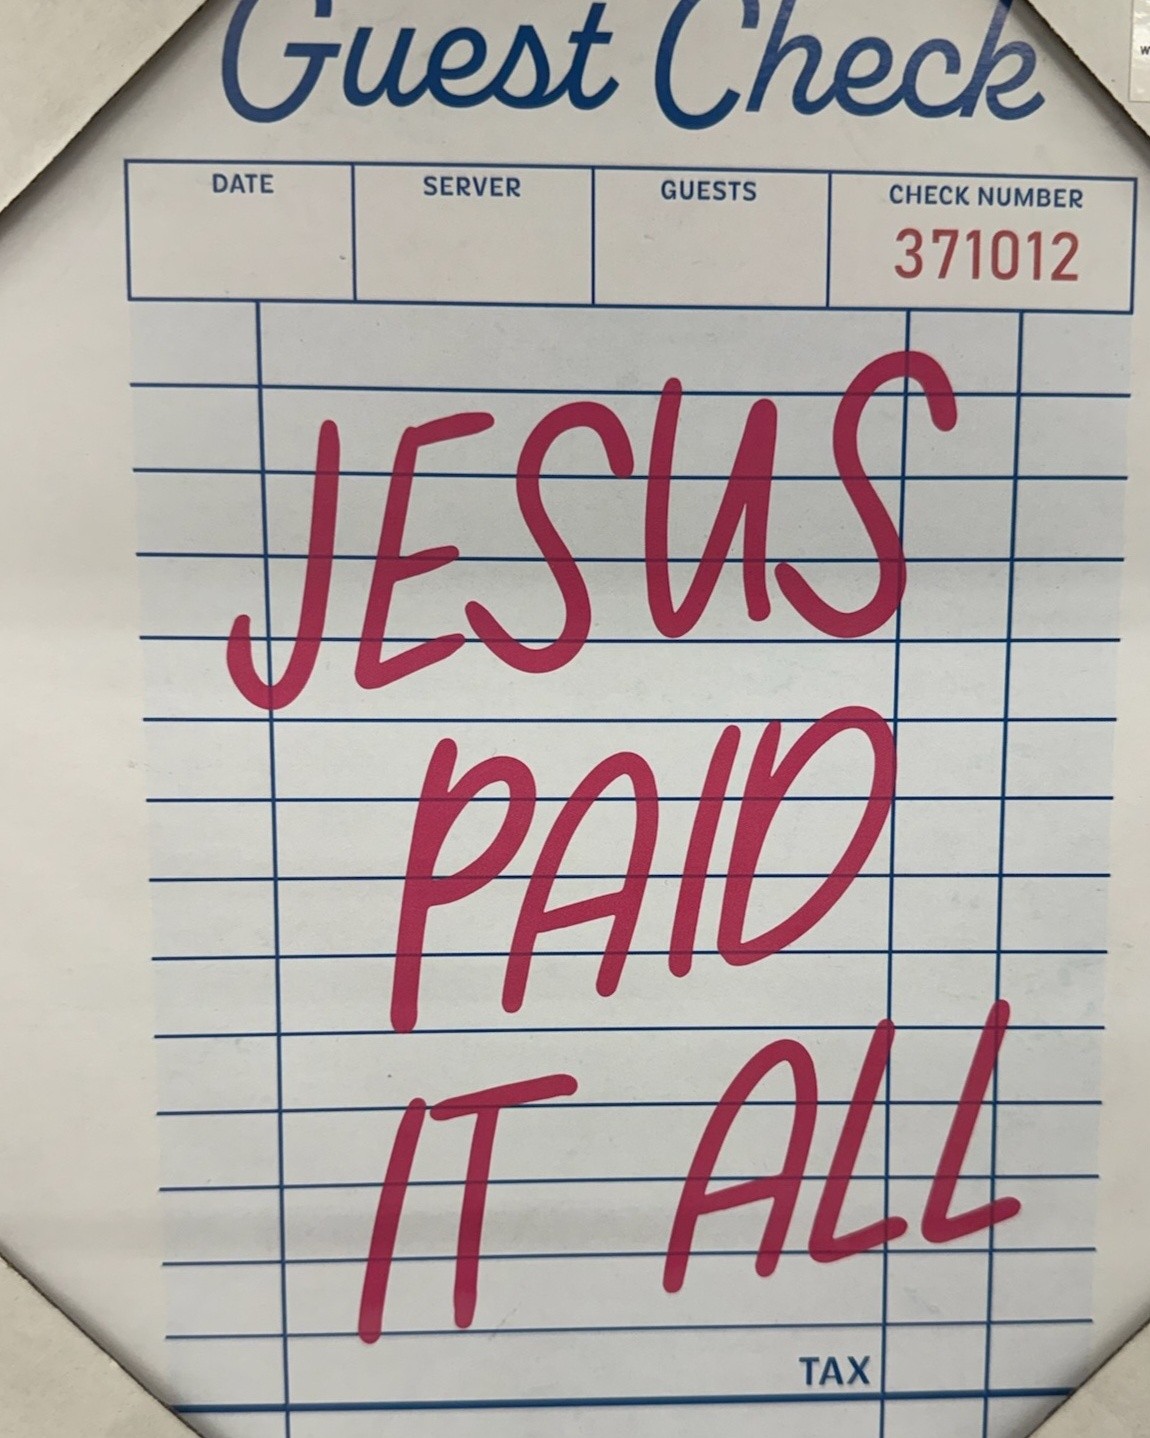 Guest Check
DATE SERVER GUESTS CHECK NUMBER
371012
JESUS
PAID
IT ALL
TAX